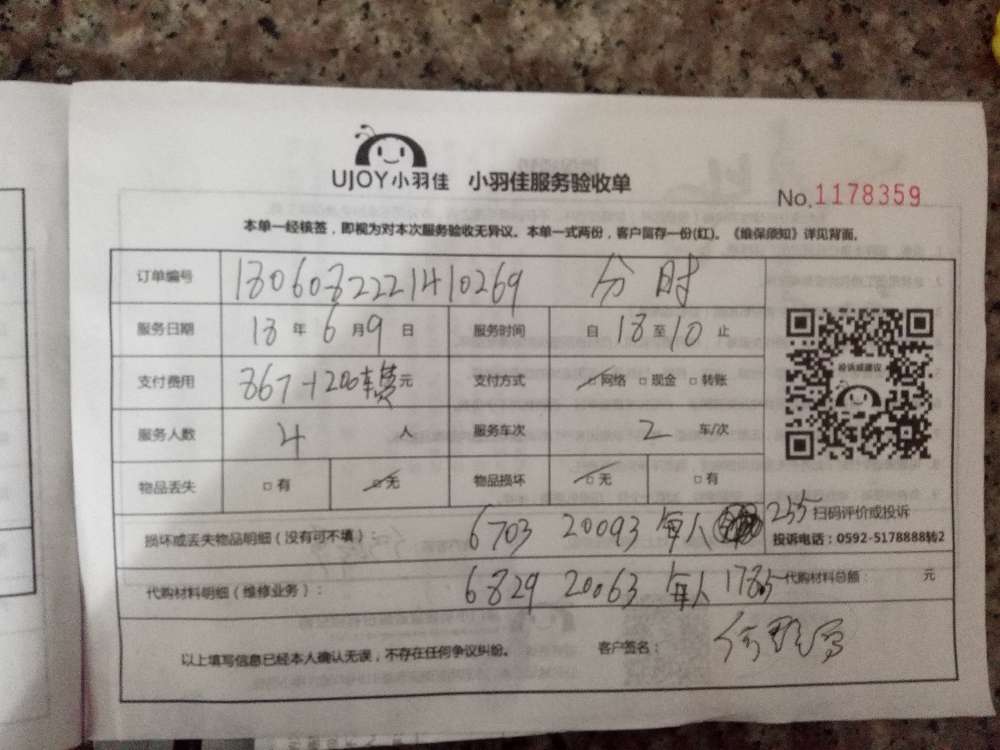 UJOY小羽佳 小羽佳服务验收单
No.1178359
本单一经核签，即视为对本次服务验收无异议。本单一式两份，客户留存一份(红)。《维保须知》详见背面。
订单编号 180608222141 0269 分时
服务日期 18 年 6 月 9 日 服务时间 自 18 至 10 止
支付费用 867+200车费元 支付方式 □网络 □现金 □转账
投诉或建议
服务人数 4 人 服务车次 2 车/次
物品丢失 □有 □无 物品损坏 □无 □有
损坏或丢失物品明细（没有可不填）： 6703 20093 每人 255
扫码评价或投诉
投诉电话：0592-5178888转2
代购材料明细（维修业务）： 6829 20063 每人 178.5 代购材料总额： 元
以上填写信息已经本人确认无误，不存在任何争议纠纷。 客户签名：